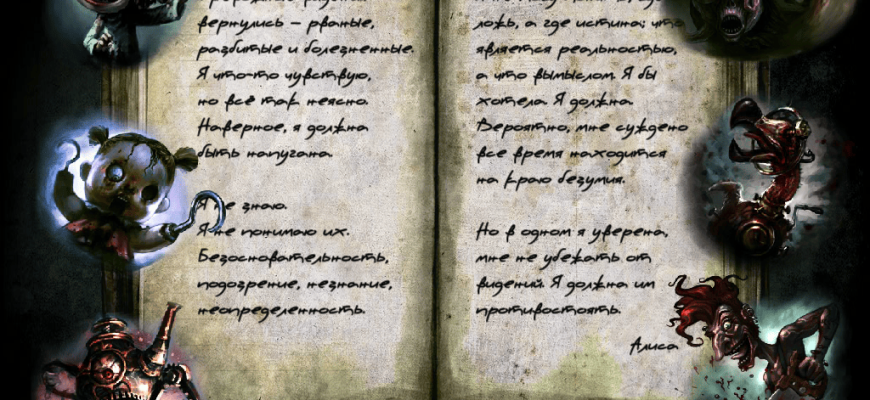 вернулись – рваные,
разбитые и болезненные.
Я что-то чувствую,
но всё так неясно.
Наверное, я должна
быть напугана.
Я не знаю.
Я не понимаю их.
Безосновательность,
подозрение, незнание,
неопределенность.
ложь, а где истина; что
является реальностью,
а что вымыслом. Я бы
хотела. Я должна.
Вероятно, мне суждено
все время находится
на краю безумия.
Но в одном я уверена,
мне не убежать от
видений. Я должна им
противостоять.
Алиса